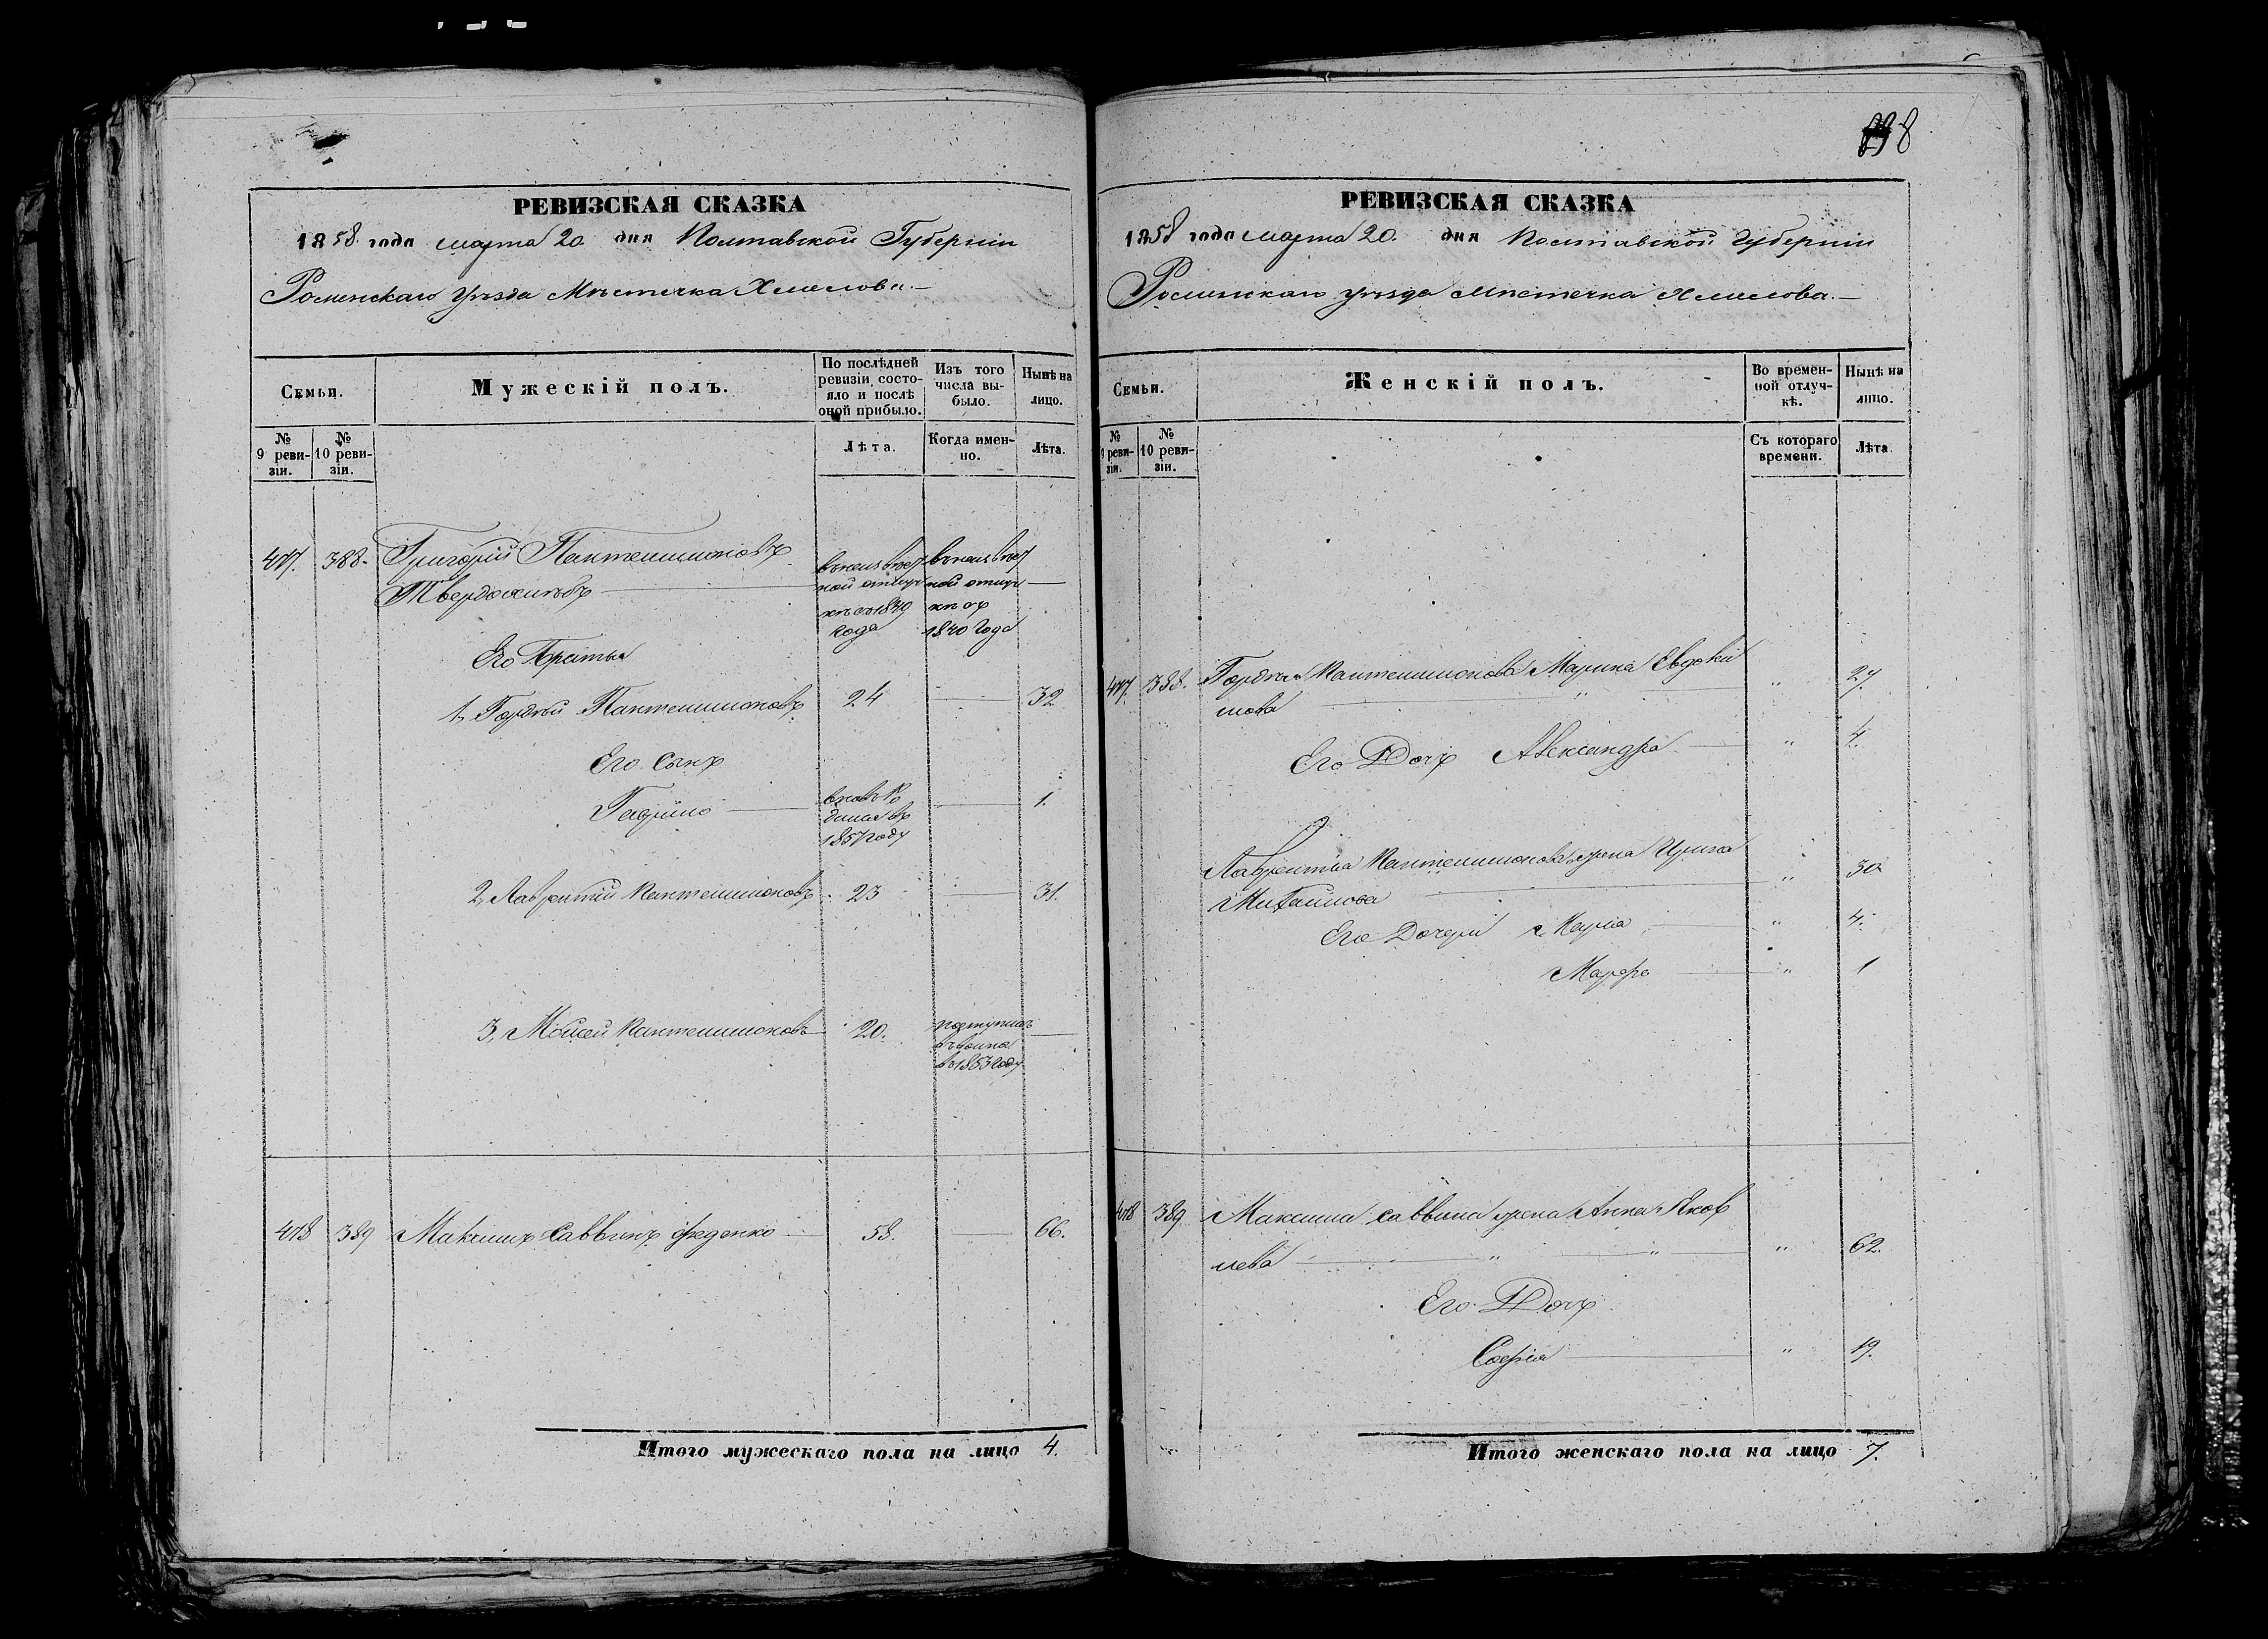 РЕВИЗСКАЯ СКАЗКА
1858 года марта 20 дня Полтавской Губерніи
Роменскаго Уѣзда Мѣстечка Хмелова.—
Семьи.
Мужескій полъ.
По послѣдней ревизіи состояло и послѣ оной прибыло.
Изъ того числа выбыло.
Нынѣ на лицо.
№ 9 ревизіи.
№ 10 ревизіи.
Лѣта.
Когда именно.
Лѣта.
477. 388. Григорій Пантелимоновъ
Твердохлѣбъ
ной отлуч ной отлуч
кѣ съ 1839 кѣ съ
года 1840 Года
Его Братья
1, Гордѣй Пантелимоновъ 24 32
Его Сынъ
Гаврило вновь Ро 1.
дился въ
1857 году
2, Лаврентій Пантелимоновъ 23 31.
3, Мойсей Пантелимоновъ 20. поступилъ
въ 1853 году
478 389 Максимъ Саввинъ Феденко 58. 66.
Итого мужескаго пола на лицо 4.
838
РЕВИЗСКАЯ СКАЗКА
1858 года марта 20. дня Полтавской Губерніи
Роменскаго уѣзда Мѣстечка Хмелова.—
Семьи.
Женскій полъ.
Во временной отлучкѣ.
Нынѣ на лицо.
№ 9 ревизіи.
№ 10 ревизіи.
Съ котораго времени.
Лѣта.
477. 388. Гордѣя Пантелимонова Марина Евдоки
мова " " 27.
Его Дочь Александра " 4.
Лаврентія Пантелимонова жена Ирина
Михайлова " 30
Его Дочери Марія " 4.
Марфа " 1
478 389 Максима Саввина жена Анна Яков
лева " " " 62.
Его Дочь
Софія " 19.
Итого женскаго пола на лицо 7.